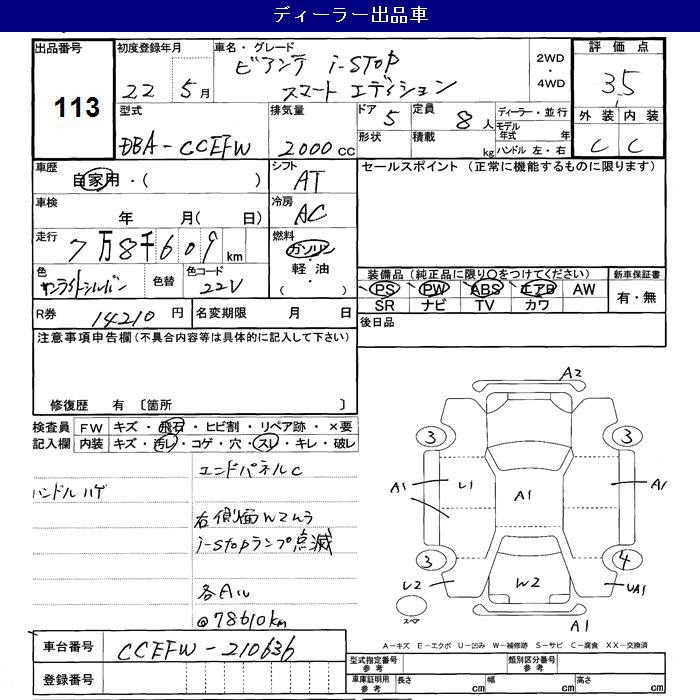 ディーラー出品車
出品番号
113
初度登録年月
22 5月
車名・グレード
ビアンテ i-STOP
スマートエディション
2WD
・
4WD
評価点
3.5
外装 内装
C C
型式
DBA-CCEFW
排気量
2000cc
ドア 5
定員 8人
形状
積載 kg
ディーラー・並行
モデル年式 年
ハンドル 左・右
車歴
自家用・( )
シフト
AT
セールスポイント (正常に機能するものに限ります)
車検
年 月( 日)
冷房
AC
走行
7万8千609km
燃料
ガソリン
・
軽油
・
( )
色
サンライトシルバー
色替
色コード
22V
装備品(純正品に限り○をつけてください)
PS PW ABS エアB AW
SR ナビ TV カワ
新車保証書
有・無
R券 14210円
名変期限 月 日
後日品
注意事項申告欄(不具合内容等は具体的に記入して下さい)
修復歴 有 〔箇所 〕
検査員
記入欄
FW キズ・飛石・ヒビ割・リペア跡・×要
内装 キズ・汚レ・コゲ・穴・スレ・キレ・破レ
エンドパネルC
ハンドルハゲ
右側面W2ムラ
i-stopランプ点滅
各Aル
@78610km
A2
3 3
A1 U1 A1 A1
3 4
U2 W2 UA1
スペア
A1
A-キズ E-エクボ U-凹み W-補修跡 S-サビ C-腐食 XX-交換済
車台番号 CCEFW-210636
登録番号
型式指定番号
参考
類別区分番号
参考
車庫証明用
参考
長さ cm 幅 cm 高さ cm